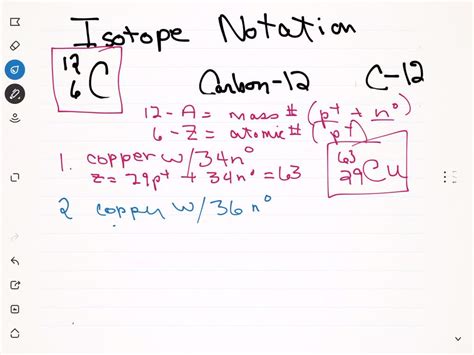 Isotope Notation
¹²₆C Carbon-12 C-12
12 - A = mass # (p⁺ + n⁰)
6 - Z = atomic # (p⁺)
1. copper w/ 34n⁰
z = 29p⁺ + 34n⁰ = 63
⁶³₂₉Cu
2 copper w/ 36n⁰